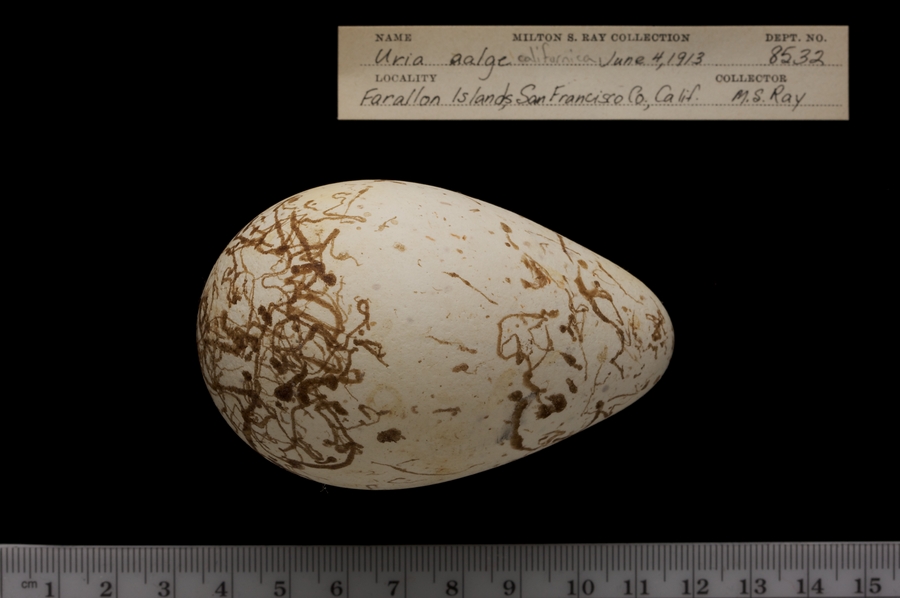 NAME MILTON S. RAY COLLECTION DEPT. NO.
Uria aalge californica June 4, 1913 8532
LOCALITY COLLECTOR
Farallon Islands, San Francisco Co., Calif. M.S. Ray
cm 1 2 3 4 5 6 7 8 9 10 11 12 13 14 15